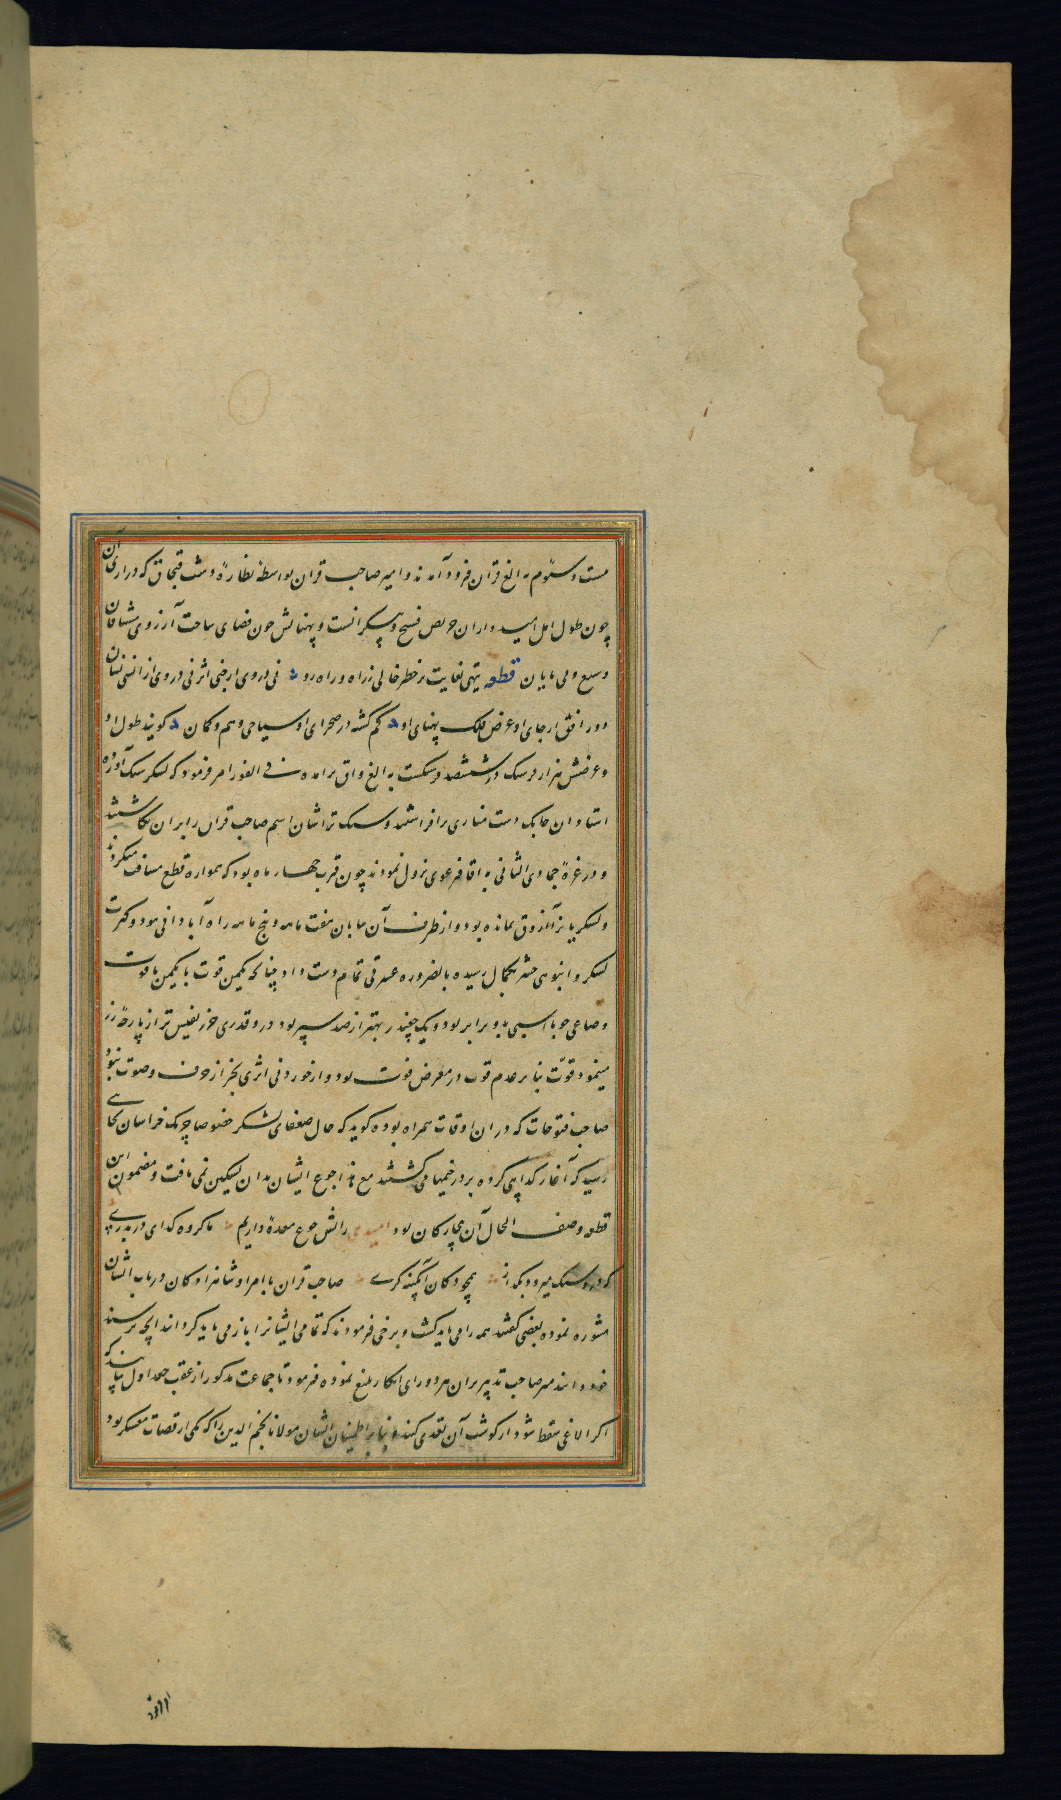 بیست و سئوم به الغ قران فرود آمدند و امیر صاحب قران بواسطۀ نظارۀ دشت قبچاق که درازی آن
چون طول امل امیدواران حریص فسیح و بیکرانست و پهنایش چون فضای ساحت آرزوی مشتاقان
وسیع و بی پایان قطعه تیهی بغایت پر خطر خالی ز راه و راه رو نی در وی از جنی اثر نی در وی از انسی نشان
دور افق ارجای او عرض فلک پهنای او گم گشته در صحرای او سیاحی وهم و گمان گویند طول او
و عرضش هزار فرسنگ در ششصد فرسنگست به الغ واق برآمده فی الفور امر فرمود که لشکر سنگ آورده
استادان چابک دست مناری برافراشتند و سنگ تراشان اسم صاحب قران را بران نگاشتند
و در غرۀ جمادی الثانی به اتاقرغوی نزول نمودند چون قرب چهار ماه بود که همواره قطع مسافت میکردند
و لشکریانرا آزوق نمانده بود و از طرف آن بیابان هفت ماهه و پنج ماهه راه آبادانی نبود و کثرت
لشکر و انبوهی حشر بکمال رسیده بالضروره عسرتی تمام دست داد چنانکه یکمن قوت با یکمن یاقوت
و صاعی جو با اسبی بدو برابر بود و یک چغندر بهتر از صد سپر بود در و قدری خز نفیس تر از پارۀ زر
مینمود و قوت بنا بر عدم قوت در معرض فوت بود و از خوردنی اثری بجز از حرف و صوت نبود
صاحب فتوحات که در ان اوقات همراه بوده گوید که حال ضعفای لشکر خصوصا چریک خراسان بجای
رسید که آغاز گدایی کرده بر در خیمها می گشتند مع هذا جوع ایشان بدان تسکین نمی یافت و مضمون این
قطعه وصف الحال آن بیچارگان بود امیدی ز آتش جوع معدۀ داریم ما کروه گدای دربدری
که درو سنگ میرود بگداز همچو دکان آبگینه گری صاحب قران با امرا و شاهزادگان در باب ایشان
مشوره نموده بعضی گفتند همه را می باید کشت و برخی فرمودند که تمامی ایشانرا باز می باید گردانید انچه ترسند
خود دانند میر صاحب تدبیر بران هر دو رای انکار بلیغ نموده فرمود تا جماعت مذکور از عقب جمداول بیایند که
اگر الاغی سقط شود از گوشت آن تغذی کنند و بنا بر اطمینان ایشان مولانا نجم الدین را که یکی از قضات معسکر بود